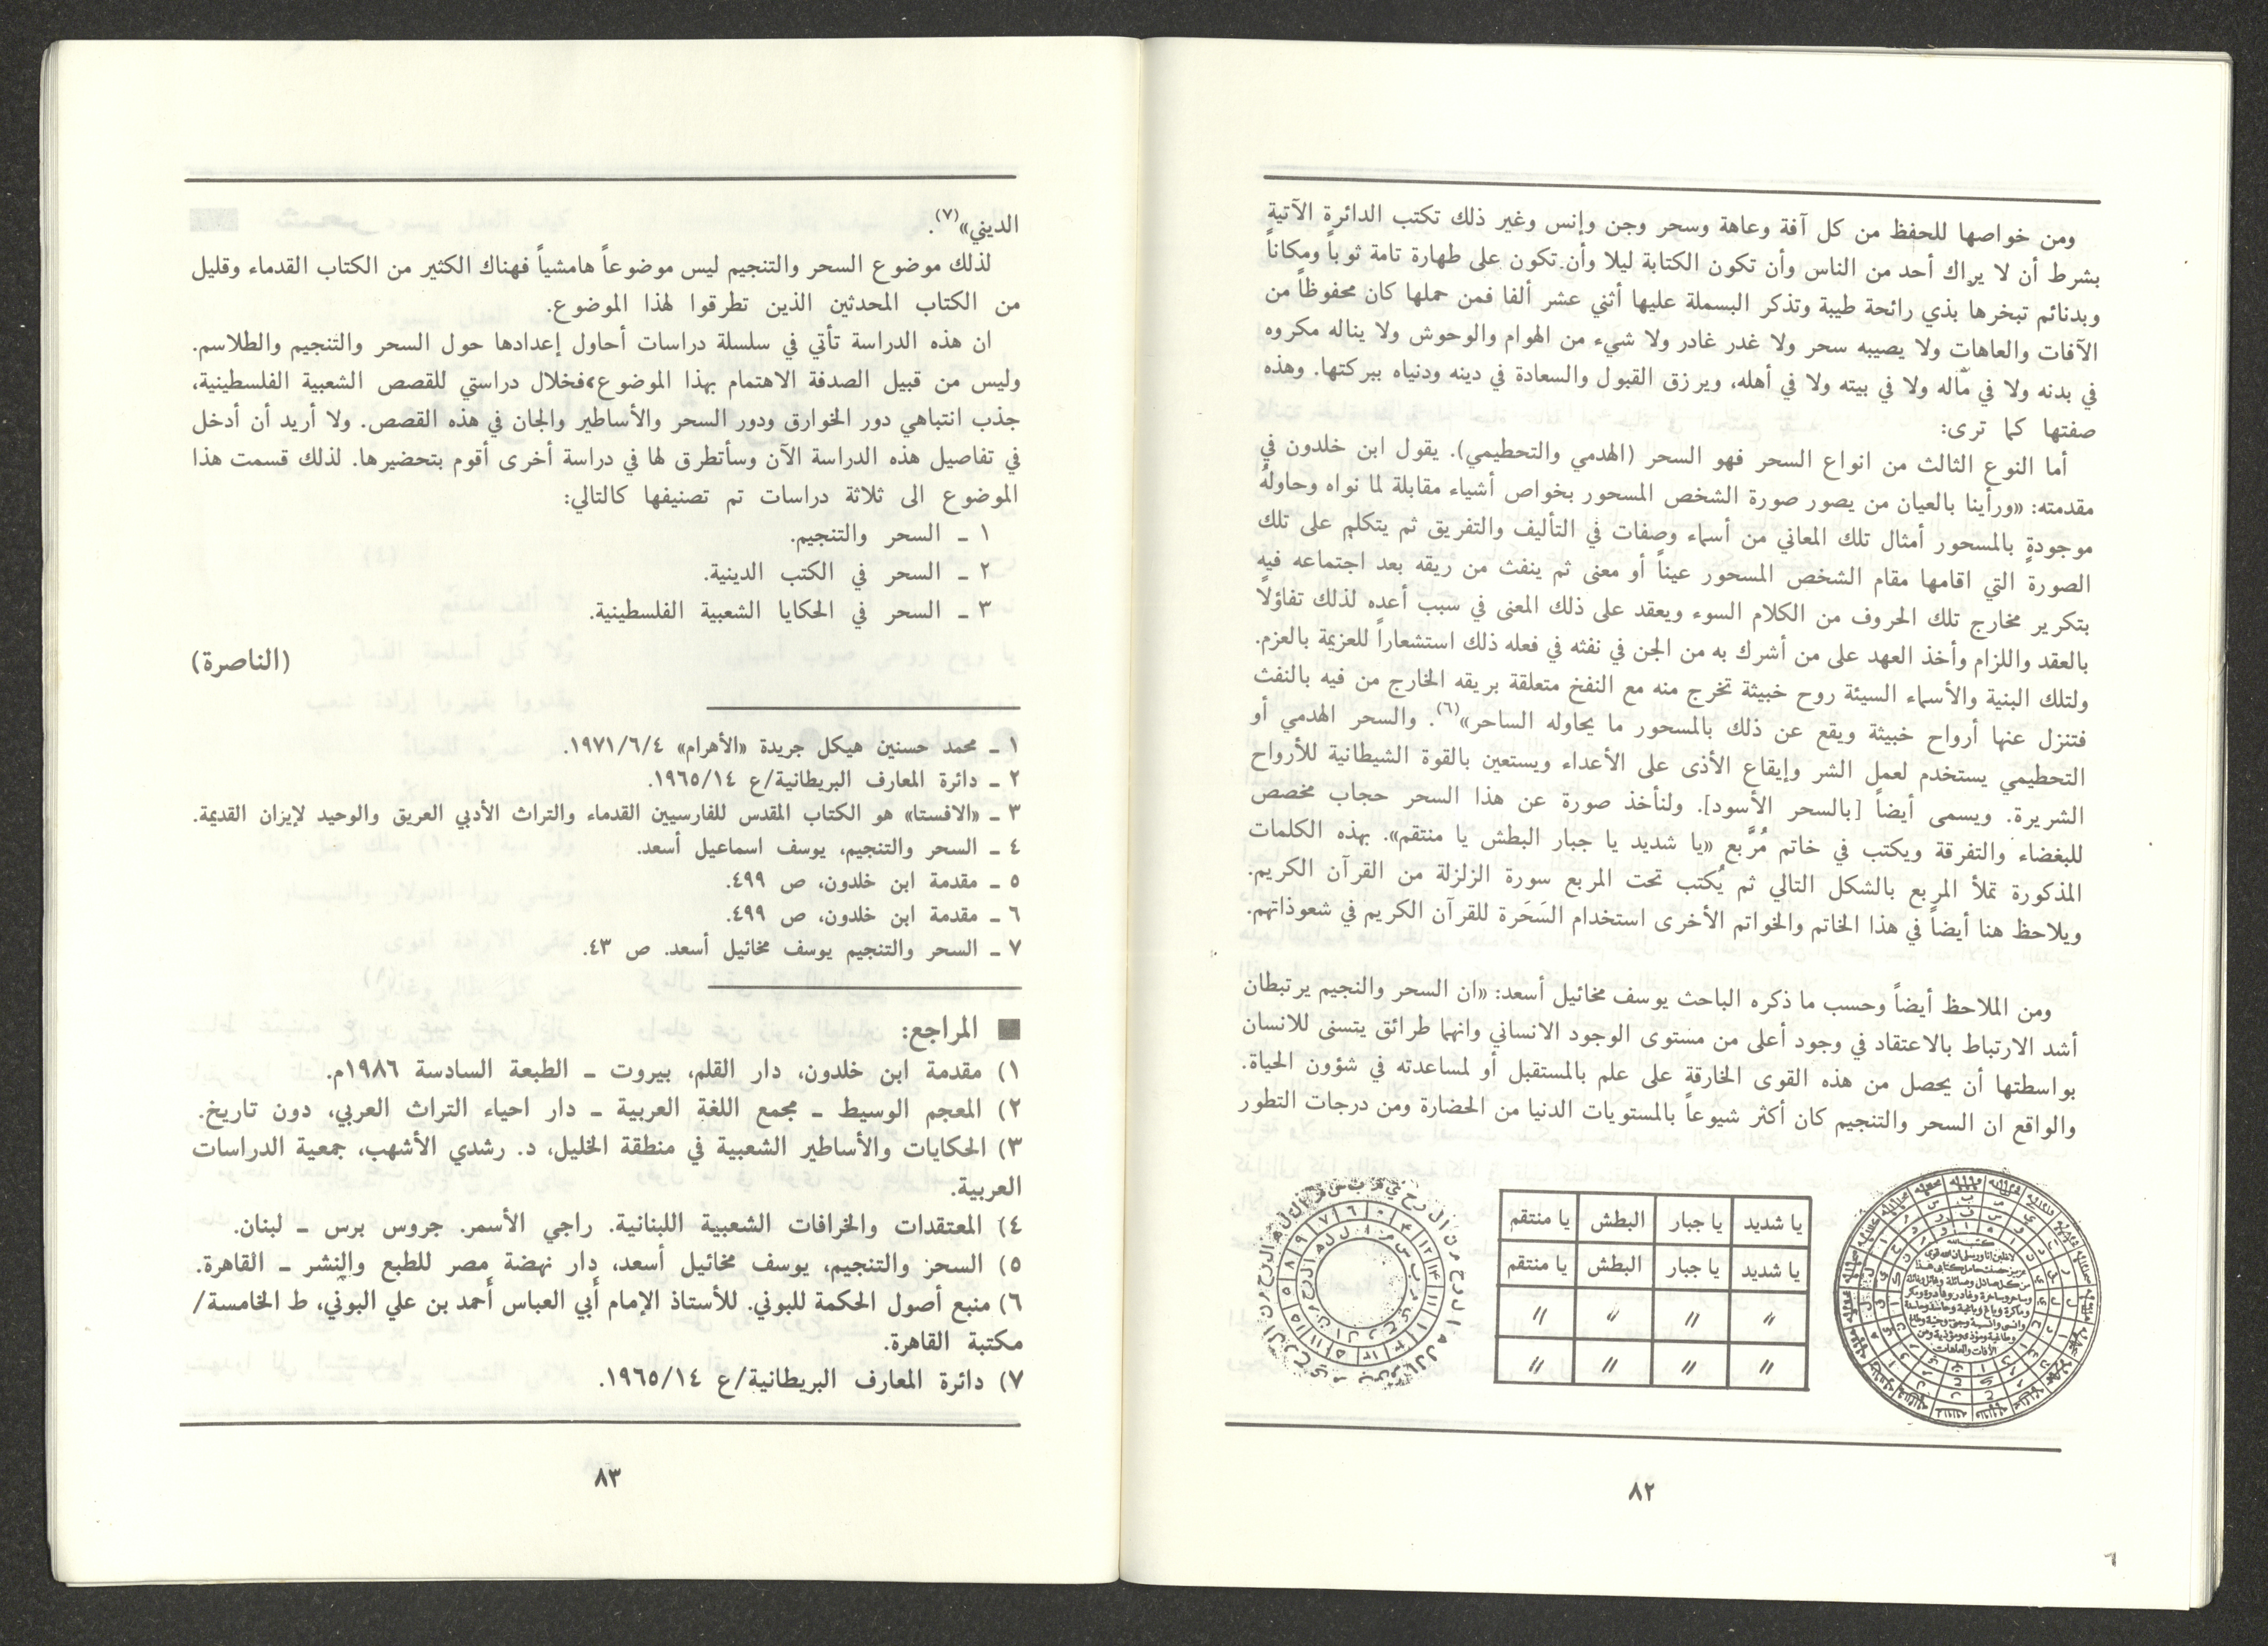 ومن خواصها للحفظ من كل آفة وعاهة وسحر وجن وإنس وغير ذلك تكتب الدائرة الآتية
بشرط أن لا يراك أحد من الناس وأن تكون الكتابة ليلا وأن تكون على طهارة تامة ثوباً ومكاناً
وبدنائم تبخرها بذي رائحة طيبة وتذكر البسملة عليها أثني عشر ألفا فمن حملها كان محفوظاً من
الآفات والعاهات ولا يصيبه سحر ولا غدر غادر ولا شيء من الهوام والوحوش ولا يناله مكروه
في بدنه ولا في مّاله ولا في بيته ولا في أهله، ويرزق القبول والسعادة في دينه ودنياه ببركتها. وهذه
صفتها كما ترى:
أما النوع الثالث من انواع السحر فهو السحر (الهدمي والتحطيمي). يقول ابن خلدون في
مقدمته: «ورأينا بالعيان من يصور صورة الشخص المسحور بخواص أشياء مقابلة لما نواه وحاوله
موجودةٍ بالمسحور أمثال تلك المعاني من أسماء وصفات في التأليف والتفريق ثم يتكلم على تلك
الصورة التي اقامها مقام الشخص المسحور عيناً أو معنى ثم ينفث من ريقه بعد اجتماعه فيه
بتكرير مخارج تلك الحروف من الكلام السوء ويعقد على ذلك المعنى في سبب أعده لذلك تفاؤلاً
بالعقد واللزام وأخذ العهد على من أشرك به من الجن في نفثه في فعله ذلك استشعاراً للعزيمة بالعزم.
ولتلك البنية والأسماء السيئة روح خبيثة تخرج منه مع النفخ متعلقة بريقه الخارج من فيه بالنفث
فتنزل عنها أرواح خبيثة ويقع عن ذلك بالمسحور ما يحاوله الساحر»(٦). والسحر الهدمي أو
التحطيمي يستخدم لعمل الشر وإيقاع الأذى على الأعداء ويستعين بالقوة الشيطانية للأرواح
الشريرة. ويسمى أيضاً [بالسحر الأسود]. ولنأخذ صورة عن هذا السحر حجاب مخصص
للبغضاء والتفرقة ويكتب في خاتم مُرَّبع «يا شديد يا جبار البطش يا منتقم». بهذه الكلمات
المذكورة تملأ المربع بالشكل التالي ثم يُكتب تحت المربع سورة الزلزلة من القرآن الكريم.
ويلاحظ هنا أيضاً في هذا الخاتم والخواتم الأخرى استخدام السَحَرة للقرآن الكريم في شعوذاتهم.
ومن الملاحظ أيضاً وحسب ما ذكره الباحث يوسف مخائيل أسعد: «ان السحر والنجيم يرتبطان
أشد الارتباط بالاعتقاد في وجود أعلى من مستوى الوجود الانساني وانهما طرائق يتسنى للانسان
بواسطتها أن يحصل من هذه القوى الخارقة على علم بالمستقبل أو لمساعدته في شؤون الحياة.
والواقع ان السحر والتنجيم كان أكثر شيوعاً بالمستويات الدنيا من الحضارة ومن درجات التطور
يا شديد يا جبار البطش يا منتقم
يا شديد يا جبار البطش يا منتقم
〃 〃 〃 〃
〃 〃 〃 〃
٨٢
الديني»(٧).
لذلك موضوع السحر والتنجيم ليس موضوعاً هامشياً فهناك الكثير من الكتاب القدماء وقليل
من الكتاب المحدثين الذين تطرقوا لهذا الموضوع.
ان هذه الدراسة تأتي في سلسلة دراسات أحاول إعدادها حول السحر والتنجيم والطلاسم.
وليس من قبيل الصدفة الاهتمام بهذا الموضوع، فخلال دراستي للقصص الشعبية الفلسطينية،
جذب انتباهي دور الخوارق ودور السحر والأساطير والجان في هذه القصص. ولا أريد أن أدخل
في تفاصيل هذه الدراسة الآن وسأتطرق لها في دراسة أخرى أقوم بتحضيرها. لذلك قسمت هذا
الموضوع الى ثلاثة دراسات تم تصنيفها كالتالي:
١ ـ السحر والتنجيم.
٢ ـ السحر في الكتب الدينية.
٣ ـ السحر في الحكايا الشعبية الفلسطينية.
(الناصرة)
١ ـ محمد حسنين هيكل جريدة «الأهرام» ١٩٧١/٦/٤.
٢ ـ دائرة المعارف البريطانية/ع ١٩٦٥/١٤.
٣ ـ «الافستا» هو الكتاب المقدس للفارسيين القدماء والتراث الأدبي العريق والوحيد لإيزان القديمة.
٤ ـ السحر والتنجيم، يوسف اسماعيل أسعد.
٥ ـ مقدمة ابن خلدون، ص ٤٩٩.
٦ ـ مقدمة ابن خلدون، ص ٤٩٩.
٧ ـ السحر والتنجيم يوسف مخائيل أسعد. ص ٤٣.
■ المراجع:
١) مقدمة ابن خلدون، دار القلم، بيروت ـ الطبعة السادسة ١٩٨٦م.
٢) المعجم الوسيط ـ مجمع اللغة العربية ـ دار احياء التراث العربي، دون تاريخ.
٣) الحكايات والأساطير الشعبية في منطقة الخليل، د. رشدي الأشهب، جمعية الدراسات
العربية.
٤) المعتقدات والخرافات الشعبية اللبنانية. راجي الأسمر. جروس برس ـ لبنان.
٥) السحز والتنجيم، يوسف مخائيل أسعد، دار نهضة مصر للطبع والنشر ـ القاهرة.
٦) منبع أصول الحكمة للبوني. للأستاذ الإمام أبي العباس أحمد بن علي البوني، ط الخامسة/
مكتبة القاهرة.
٧) دائرة المعارف البريطانية/ع ١٩٦٥/١٤.
٨٣